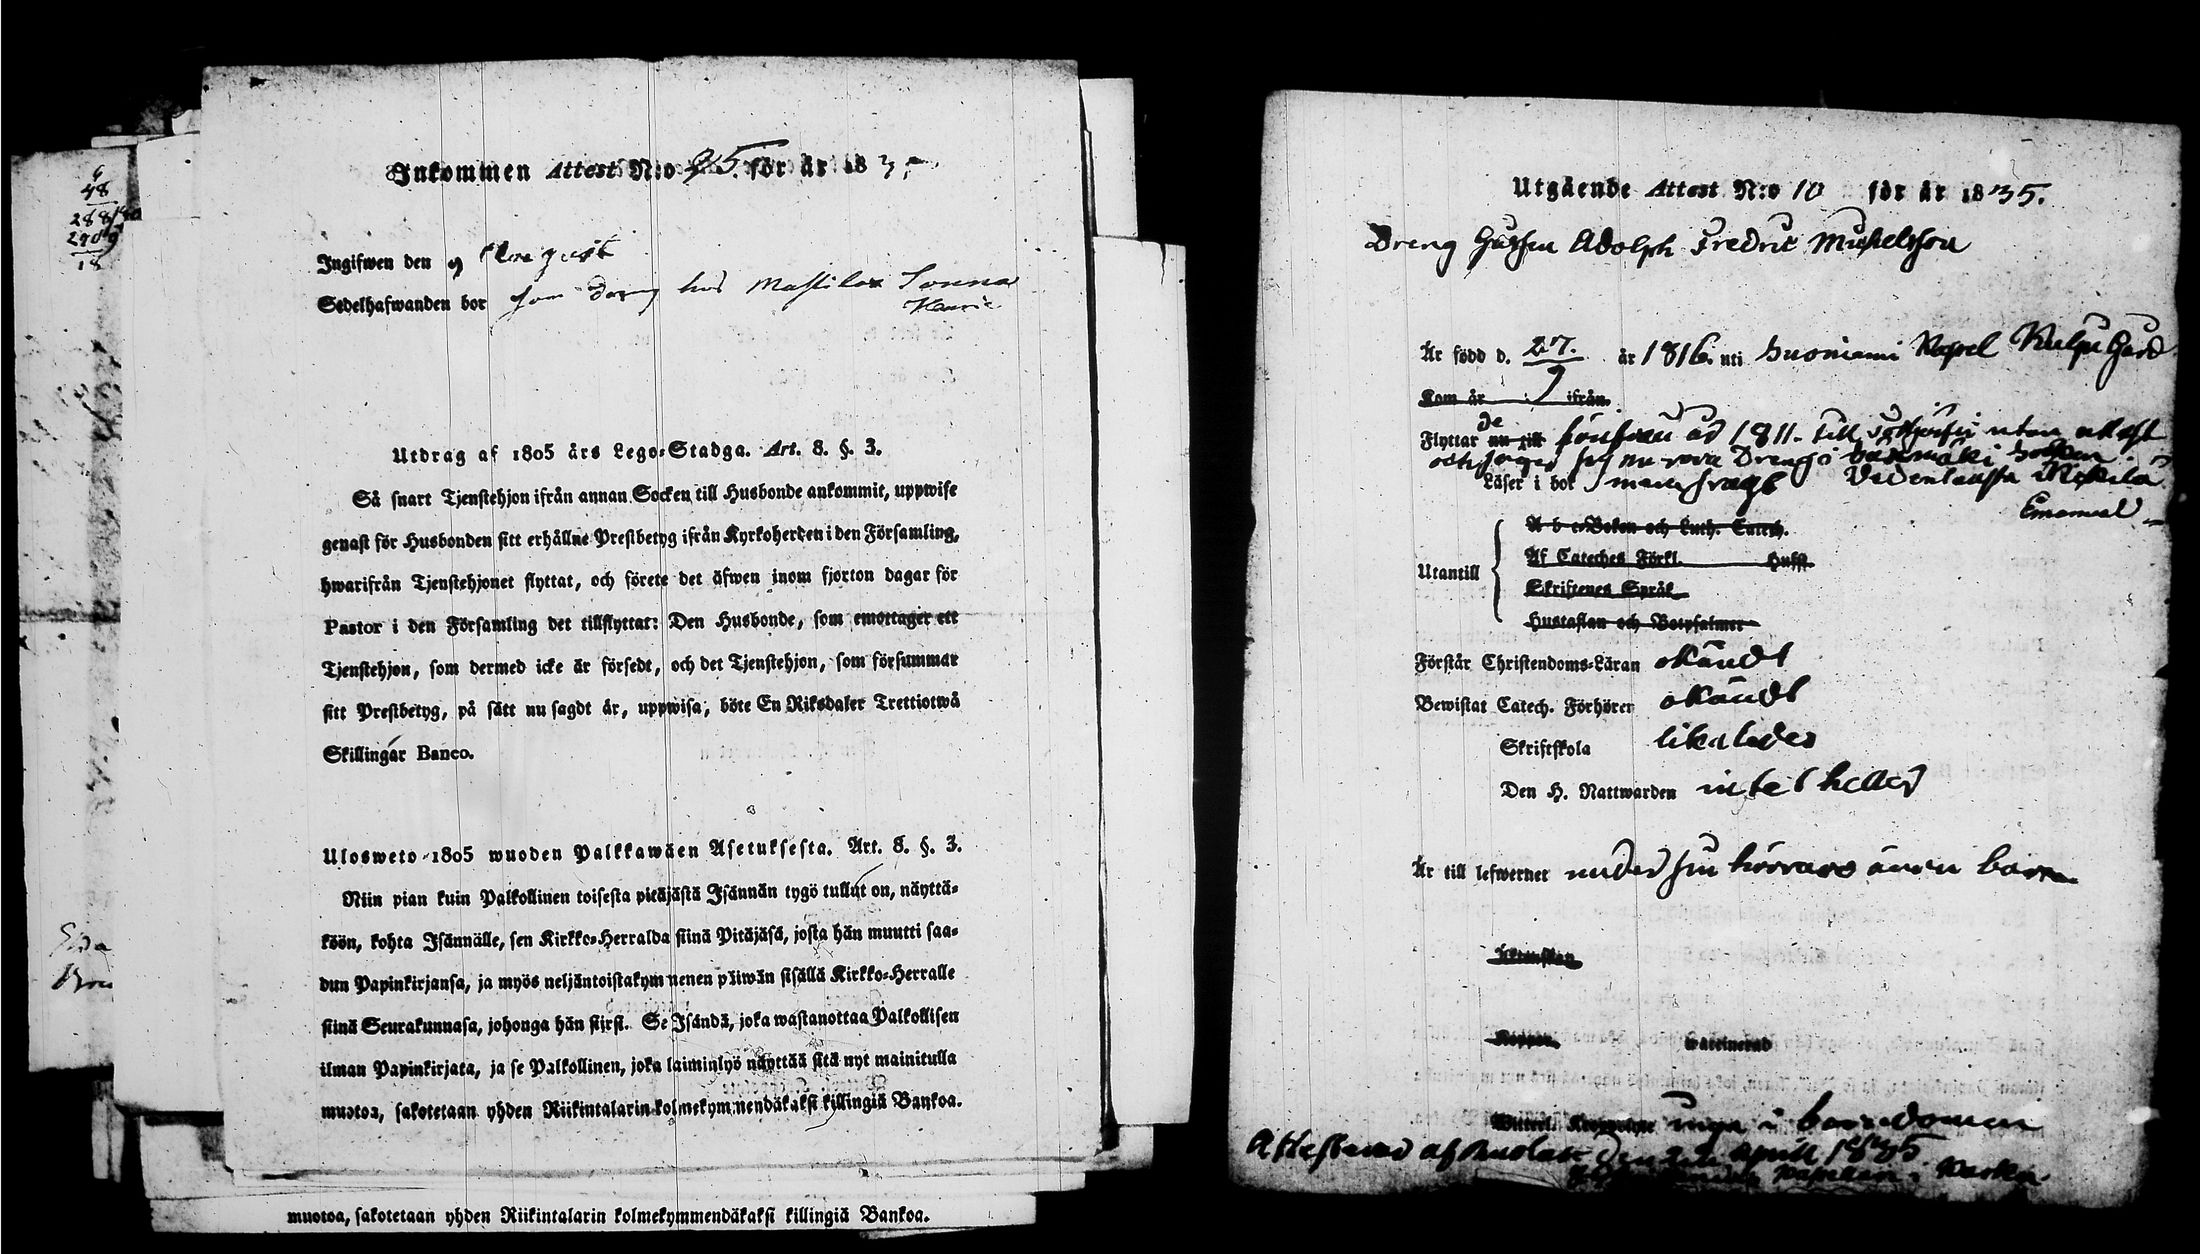 6
48
288
18
Inkommen Attest N:o 25. för år 183
Ingifwen den 9 August
Sedelhafwanden bor som dreng hos Mattilax
Utdrag af 1805 års Lego-Stadga. Art. 8. §. 3.
Så snart Tjenstehjon ifrån annan Socken till Husbonde ankommit, uppwise
genast för Husbonden sitt erhållne Prestbetyg ifrån Kyrkoherden i den Församling,
hwarifrån Tjenstehjonet flyttat, och förete det äfwen inom fjorton dagar för
Pastor i den Församling det tillflyttat: Den Husbonde, som emottager ett
Tjenstehjon, som dermed icke är försedt, och det Tjenstehjon, som försummar
sitt Prestbetyg, på sätt nu sagdt är, uppwisa, böte En Riksdaler Trettiotwå
Skillingar Banco.
Ulosweto 1805 wuoden Palkkawäen Asetuksesta. Art. 8. §. 3.
Niin pian kuin Palkollinen toisesta pitäjästä Isännän tygö tullut on, näyttä-
köön, kohta Isännälle, sen Kirkko-Herralda siinä Pitäjäsä, josta hän muutti saa-
dun Papinkirjansa, ja myös neljäntoistakymmenen päiwän sisällä Kirkko-Herralle
siinä Seurakunnasa, johonga hän siirsi. Se Isändä, joka wastanottaa Palkollisen
ilman Papinkirjata, ja se Palkollinen, joka laiminlyö näyttää sitä nyt mainitulla
muotoa, sakotetaan yhden Riikintalarin kolmekymmendäkaksi killingiä Bankoa.
muotoa, sakotetaan yhden Riikintalarin kolmekymmendäkaksi killingiä Bankoa.
Utgående Attest N:o 10 för år 1835.
Dreng Adolph Fredric Michelsson
Är född d. 27. år 1816. uti Suoniemi Kapel Kulju Gård
9
Kom år ifrån
Flyttar nu till 1811. till utan attest
och nu vara Dreng i
Läser i bok Mattila
Emanuel
Utantill
A b c-Boken och Luth. Catech.
Af Cateches Förkl. Husst.
Skriftenes Språk
Hustaflan och Botpsalmer
Förstår Christendoms-Läran okändt
Bewistat Catech. Förhörer okändt
Skriftskola likaledes
Den H. Nattwarden intet heller
Är till lefwernet under sin ännu barn
Koppor Vaccinerad
inga i barndomen
Attesterad af den April 1835